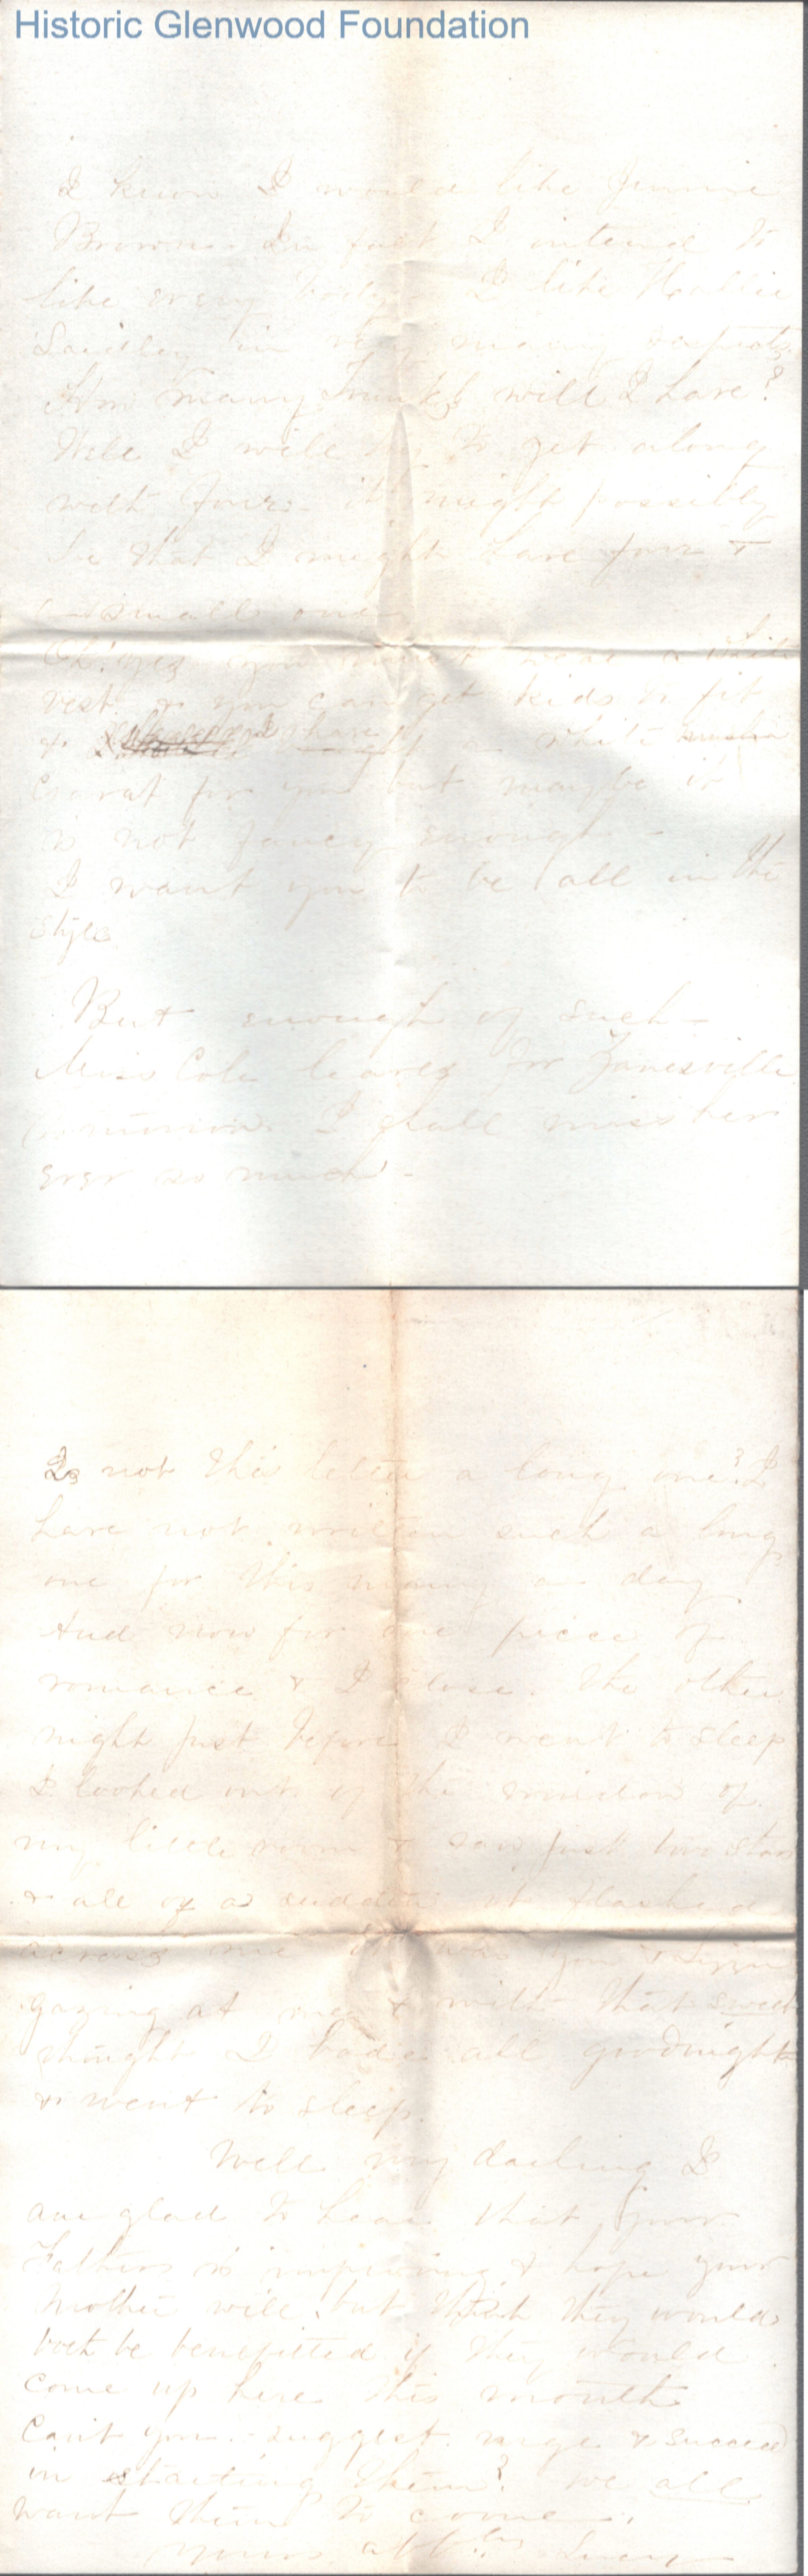 Historic Glenwood Foundation
I know I would like Jennie
Brown. In fact I intend to
like every body - I like Hallie
in very many respects.
How many Trunks will I have?
Well I will to get along
with four - it might possibly
be that I might have four &
small one
Oh! yes you must wear a white
vest & you can get kids to fit
& I have a white muslin
cravat for you but maybe it
is not fancy enough -
I want you to be all in the
style
But enough of such -
Miss Cole leaves for Zanesville
I shall miss her
ever so much -
Is not this letter a long one? I
have not written such a long
one for this many a day
And now for one piece of
romance & I close. The other
night just before I went to sleep
I looked out of the window of
my little room & saw just two stars
& all of a sudden it flashed
across me it was you &
gazing at me & with that sweet
thought I bade all goodnight
& went to sleep.
Well my darling I
am glad to hear that your
Father is improving & hope your
Mother will, but think they would
both be benefitted if they would
come up here this month
Can't you - suggest urge & succeed
in starting them? We all
want them to come.
Yours Lucy